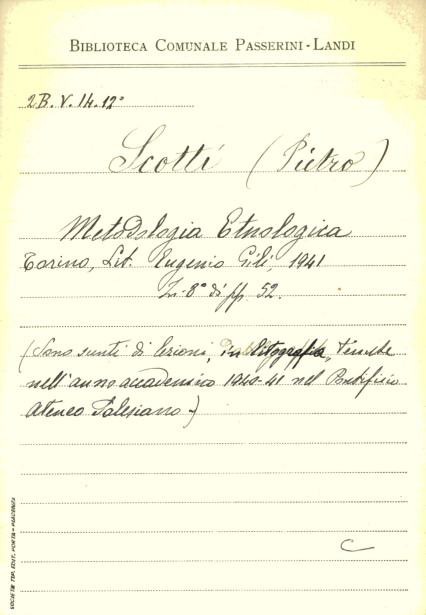 BIBLIOTECA COMUNALE PASSERINI-LANDI
2B.V.14.12°
Scotti (Pietro)
Metodologia Etnologica
Torino, Lit. Eugenio Gili, 1941
In-8° di pp. 52.
(Sono sunti di lezioni, in litografia, tenute
nell'anno accademico 1940-41 nel Pontificio
Ateneo Salesiano.)
C
SOCIETÀ TIP. EDIT. PORTA - PIACENZA